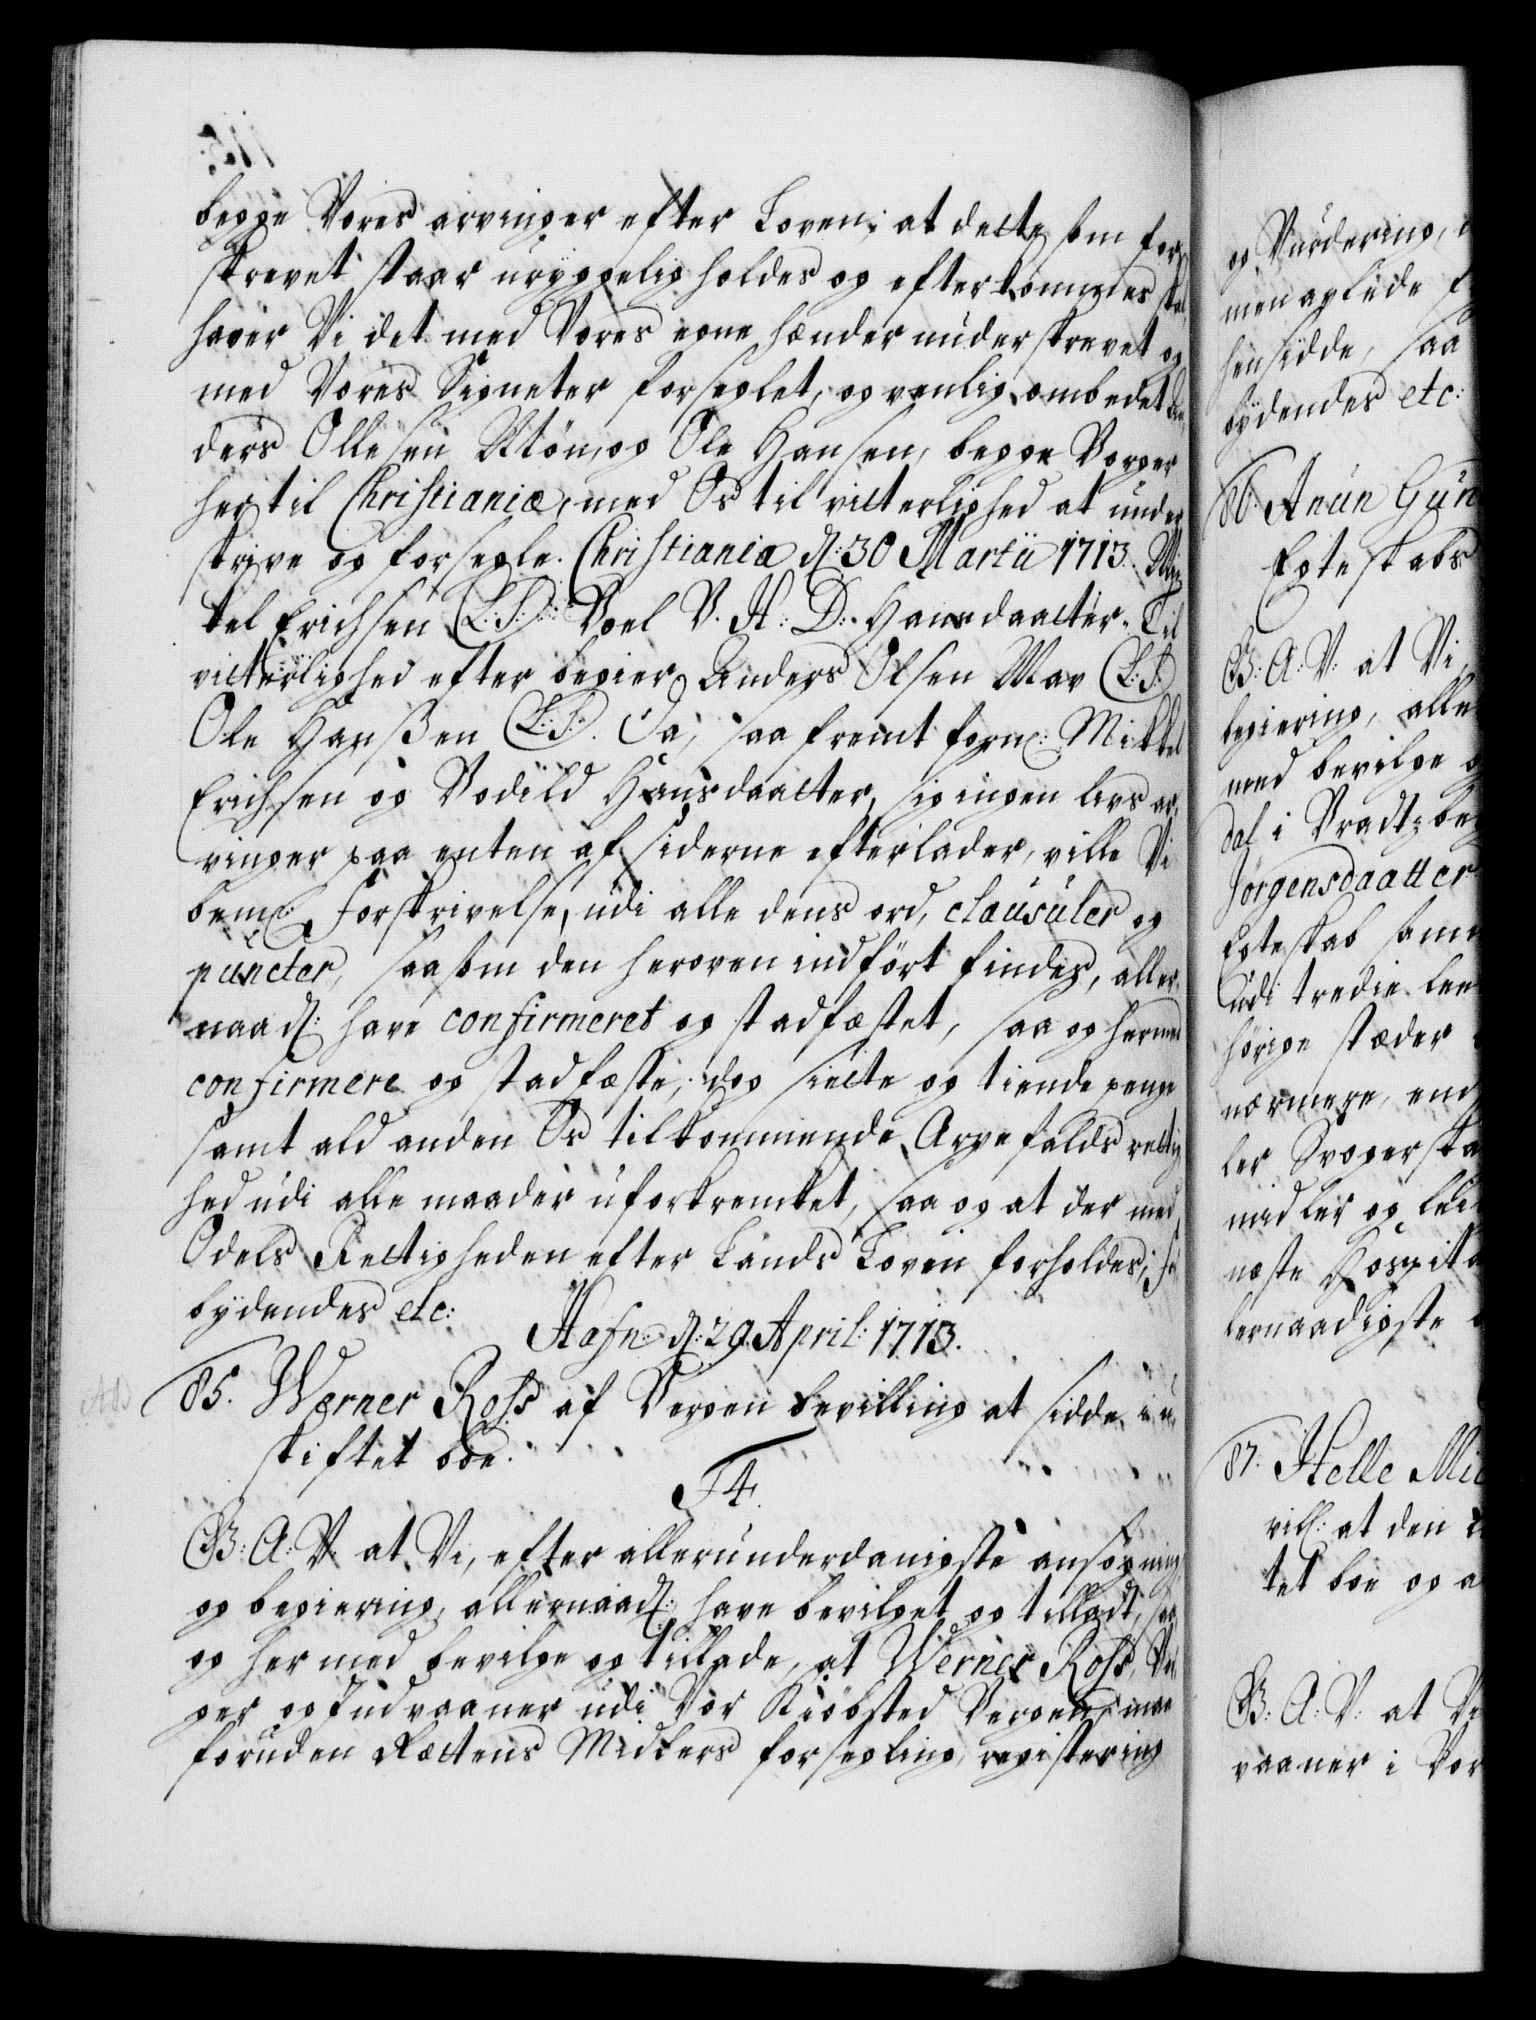 begge Vores arvinger efter Loven; at dette som for
skrevet staar uryggelig holdes og efterkommes skal
haver Vi det med Vores egne hænder underskrevet og
med Vores Signeter forseglet, og venlig ombedet An
ders Ollesen og Ole Hansen, begge Borger
her til Christiania, med Os til vitterlighed at under
skrive og forsegle. Christiania d: 30 Martii 1713. Mi
kel Erichsen (L.S.) Boel V. H: D: Hansdaatter. Til
vitterlighed efter begier Anders Olsen (L.S.)
Ole Hanßen (L.S.). Da, saafremt forne: Mikkel
Erichsen og Bodild Hansdaatter, sig ingen livs ar,
vinger paa enten af siderne efterlader, ville Vi
bemte: Forskrivelse, udi alle dens ord, clausuler og
puncter, saasom den heroven indført findes, aller,
naad: have confirmeret og stadfæstet, saa og hermed
confirmere og stadfæste, dog siette og tiende penge
samt ald anden Os tilkommende Arvefalds rettig
hed udi alle maader uforkrenket, saa og at der med
Odels Rettigheden efter Lands Loven forholdes; For
bydendes etc:
Hafn: d: 29. April: 1713.
85. Werner Rohs af Bergen bevilling at sidde i u,
skiftet boe.
F4.
G: A: V: at Vi, efter allerunderdanigste ansøgning
og begiering, allernaad: have bevilget og tilladt, saa
og hermed bevilge og tillade, at Werner Rohs, Bor
ger og Indvaaner udi Vor Kiøbsted Bergen, maa
foruden Rettens Midlers forsegling, registering
og Vurdering, i
men
hensidde, saa
bydendes etc:
86. Anun Gun
Egteskabs
G: A: V: at Vi,
begiering, alle
med bevilge o
dal i
Jørgensdaatter
Egteskab sam
udi tredie lee
hørige stæder
nærmere, end
ler Svogerska
midler og
næste Hospita
lernaadigste
87. Helle Mic
vill: at den
tet boe og a
G: A: V: at Vi
vaaner i Vor